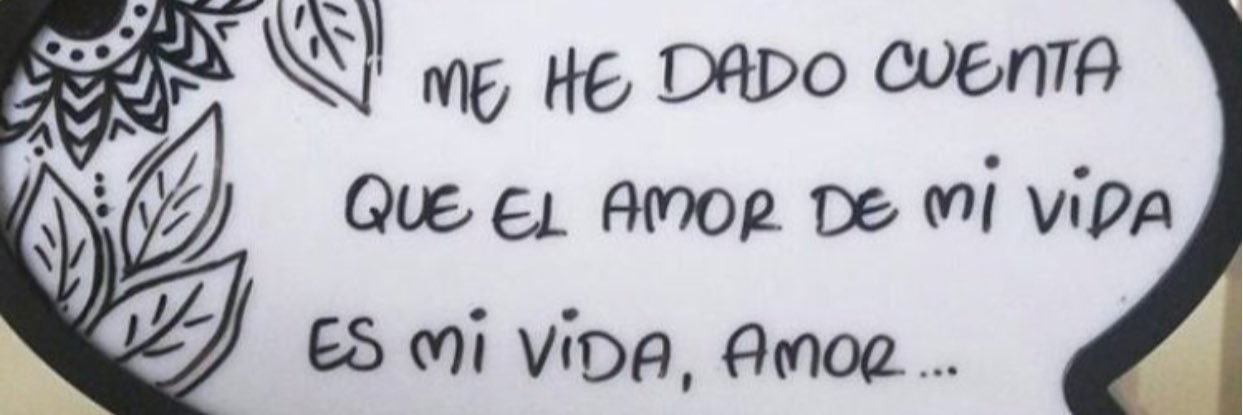 ME HE DADO CUENTA
QUE EL AMOR DE Mi ViDA
ES Mi ViDA, AMOR...